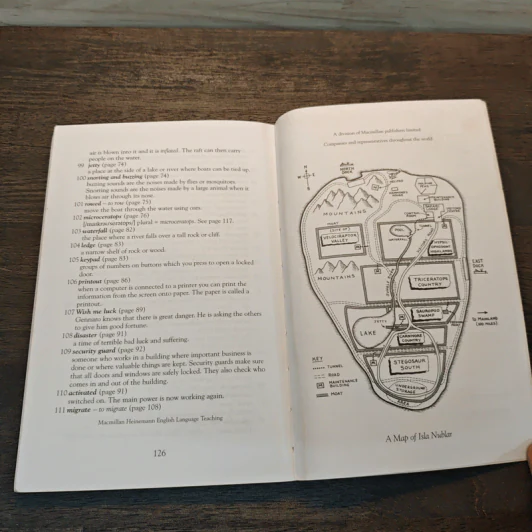 air is blown into it and it is inflated. The raft can then carry
people on the water.
99 jetty (page 74)
a place at the side of a lake or river where boats can be tied up.
100 snorting and buzzing (page 74)
buzzing sounds are the noises made by flies or mosquitoes.
Snorting sounds are the noises made by a large animal when it
blows air through its nose.
101 rowed – to row (page 75)
move the boat through the water using oars.
102 microceratops (page 76)
plural = microceratops. See page 117.
103 waterfall (page 82)
the place where a river falls over a tall rock or cliff.
104 ledge (page 83)
a narrow shelf of rock or wood.
105 keypad (page 83)
groups of numbers on buttons which you press to open a locked
door.
106 printout (page 86)
when a computer is connected to a printer you can print the
information from the screen onto paper. The paper is called a
printout.
107 Wish me luck (page 89)
Gennaro knows that there is great danger. He is asking the others
to give him good fortune.
108 disaster (page 91)
a time of terrible bad luck and suffering.
109 security guard (page 92)
someone who works in a building where important business is
done or where valuable things are kept. Security guards make sure
that all doors and windows are safely locked. They also check who
comes in and out of the building.
110 activated (page 91)
switched on. The main power is now working again.
111 migrate – to migrate (page 108)
Macmillan Heinemann English Language Teaching
126
A division of Macmillan publishers limited
Companies and representatives throughout the world
N
NORTH
DOCK
MOUNTAINS
VELOCIRAPTOR
VALLEY
POOL
TUNNEL
MOUNTAINS
TRICERATOPS
COUNTRY
EAST
DOCK
SAUROPOD
SWAMP
LAKE
CARNIVORE
COUNTRY
TO MAINLAND
STEGOSAUR
SOUTH
KEY
TUNNEL
ROAD
MAINTENANCE
BUILDING
MOAT
UNDERGROUND
STORAGE
A Map of Isla Nublar